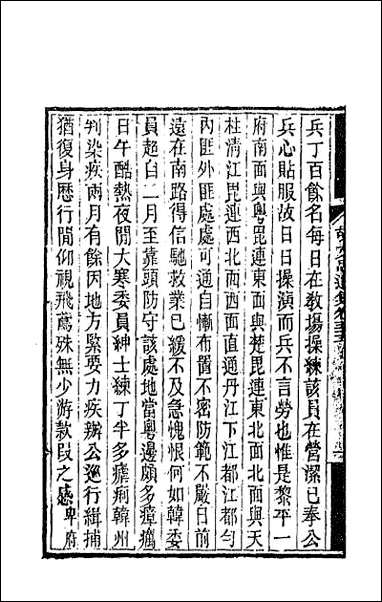 兵丁百餘名每日在敎場操練該員在營潔已奉公
兵心貼服故日日操演而兵不言勞也惟是黎平一
府南面與粤毘連東面與楚毘連東北面北面與天
柱淸江毘連西北面西面直通丹江下江都江都勻
內匪外匪處處可通自慚布置不密防範不嚴日前
遠在南路得信馳救業已緩不及急愧恨何如韓委
員超自二月至靠頭防守該處地當粤邊頗多瘴癘
日午酷熱夜間大寒委員紳士練丁半多瘧痢韓州
判染疾兩月有餘因地方緊要力疾辦公廵行緝捕
猶復身歷行間仰視飛鳶殊無少游款叚之感卑府